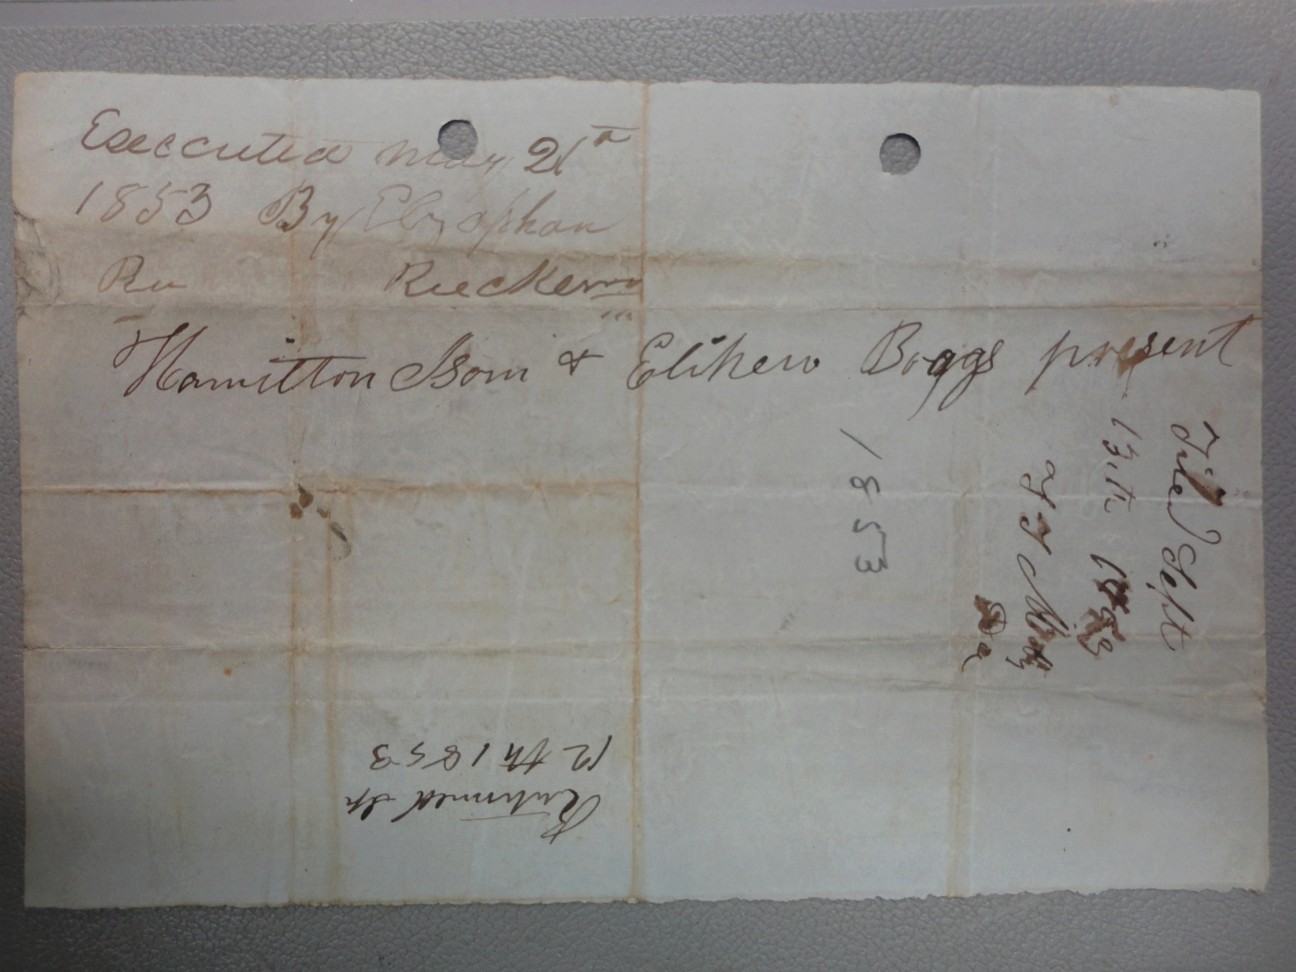 Executed May 21st
1853 By Elzaphan
Ru Ruckerun
Hamilton Isom & Elihew Boggs present
Filed Sept
13.th 1853
1853
Returned Sp
12th 1853